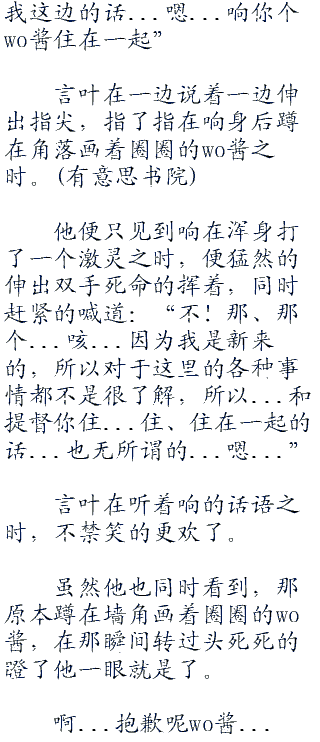 我这边的话...嗯...响你个
wo酱住在一起”
言叶在一边说着一边伸
出指尖，指了指在响身后蹲
在角落画着圈圈的wo酱之
时。(有意思书院)
他便只见到响在浑身打
了一个激灵之时，便猛然的
伸出双手死命的挥着，同时
赶紧的喊道：“不！那、那
个...咳...因为我是新来
的，所以对于这里的各种事
情都不是很了解，所以...和
提督你住...住、住在一起的
话...也无所谓的...嗯...”
言叶在听着响的话语之
时，不禁笑的更欢了。
虽然他也同时看到，那
原本蹲在墙角画着圈圈的wo
酱，在那瞬间转过头死死的
瞪了他一眼就是了。
啊...抱歉呢wo酱...